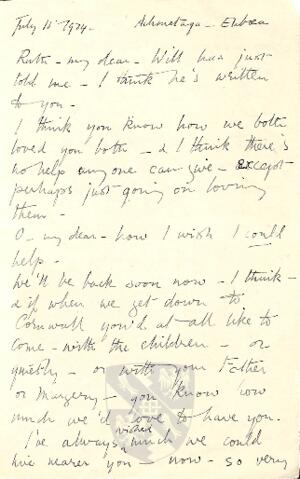 July 15 1924 - Achmetaga - Euboea
Ruth - my dear - Will has just
told me - I think he's written
to you -
I think you know how we both
loved you both - & I think there's
no help anyone can give - except
perhaps just going on loving
them -
O - my dear - how I wish I could
help -
We'll be back soon now - I think -
& if when we get down to
Cornwall you'd at all like to
come - with the children - or
quietly - or with your Father
or Margery - you know how
much we'd love to have you.
I've always wished much we could
live nearer you - now - so very